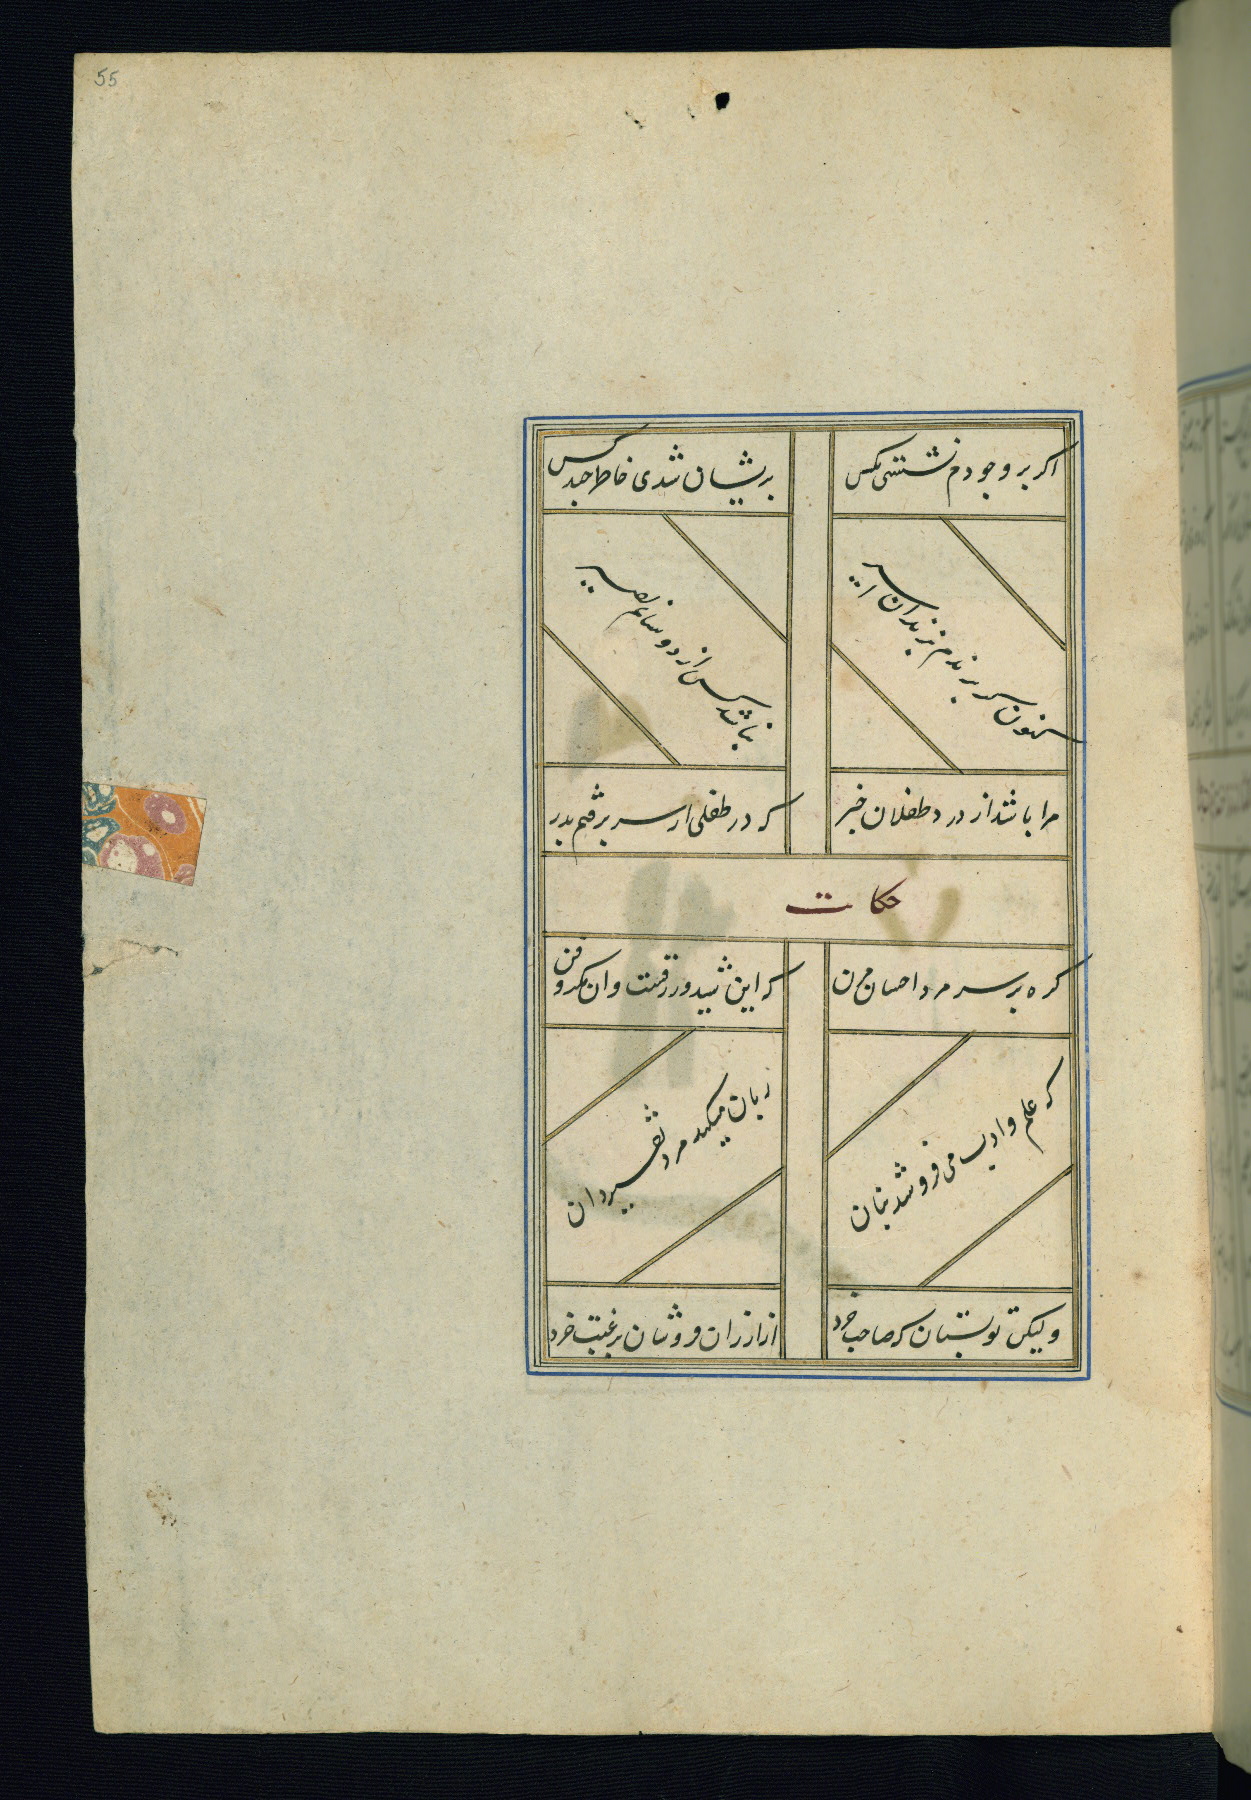 55
اکر بر وجودم نشستی مکس
پریشان شدی خاطر چند کس
کنون کر بر ندم بزندان اسیر
نباشد کس از دوستانم نصیر
مرا باشد از درد طفلان خبر
که در طفلی از سر برفتم پدر
حکایت
کره بر سر مرد احسان مزن
که این شید و زرقست وان مکر و فن
که علم و ادب می فروشد بنان
زیان میکند مرد تفسیردان
ولیکن تو بستان که صاحب خرد
از ارزان فروشان برغبت خرد